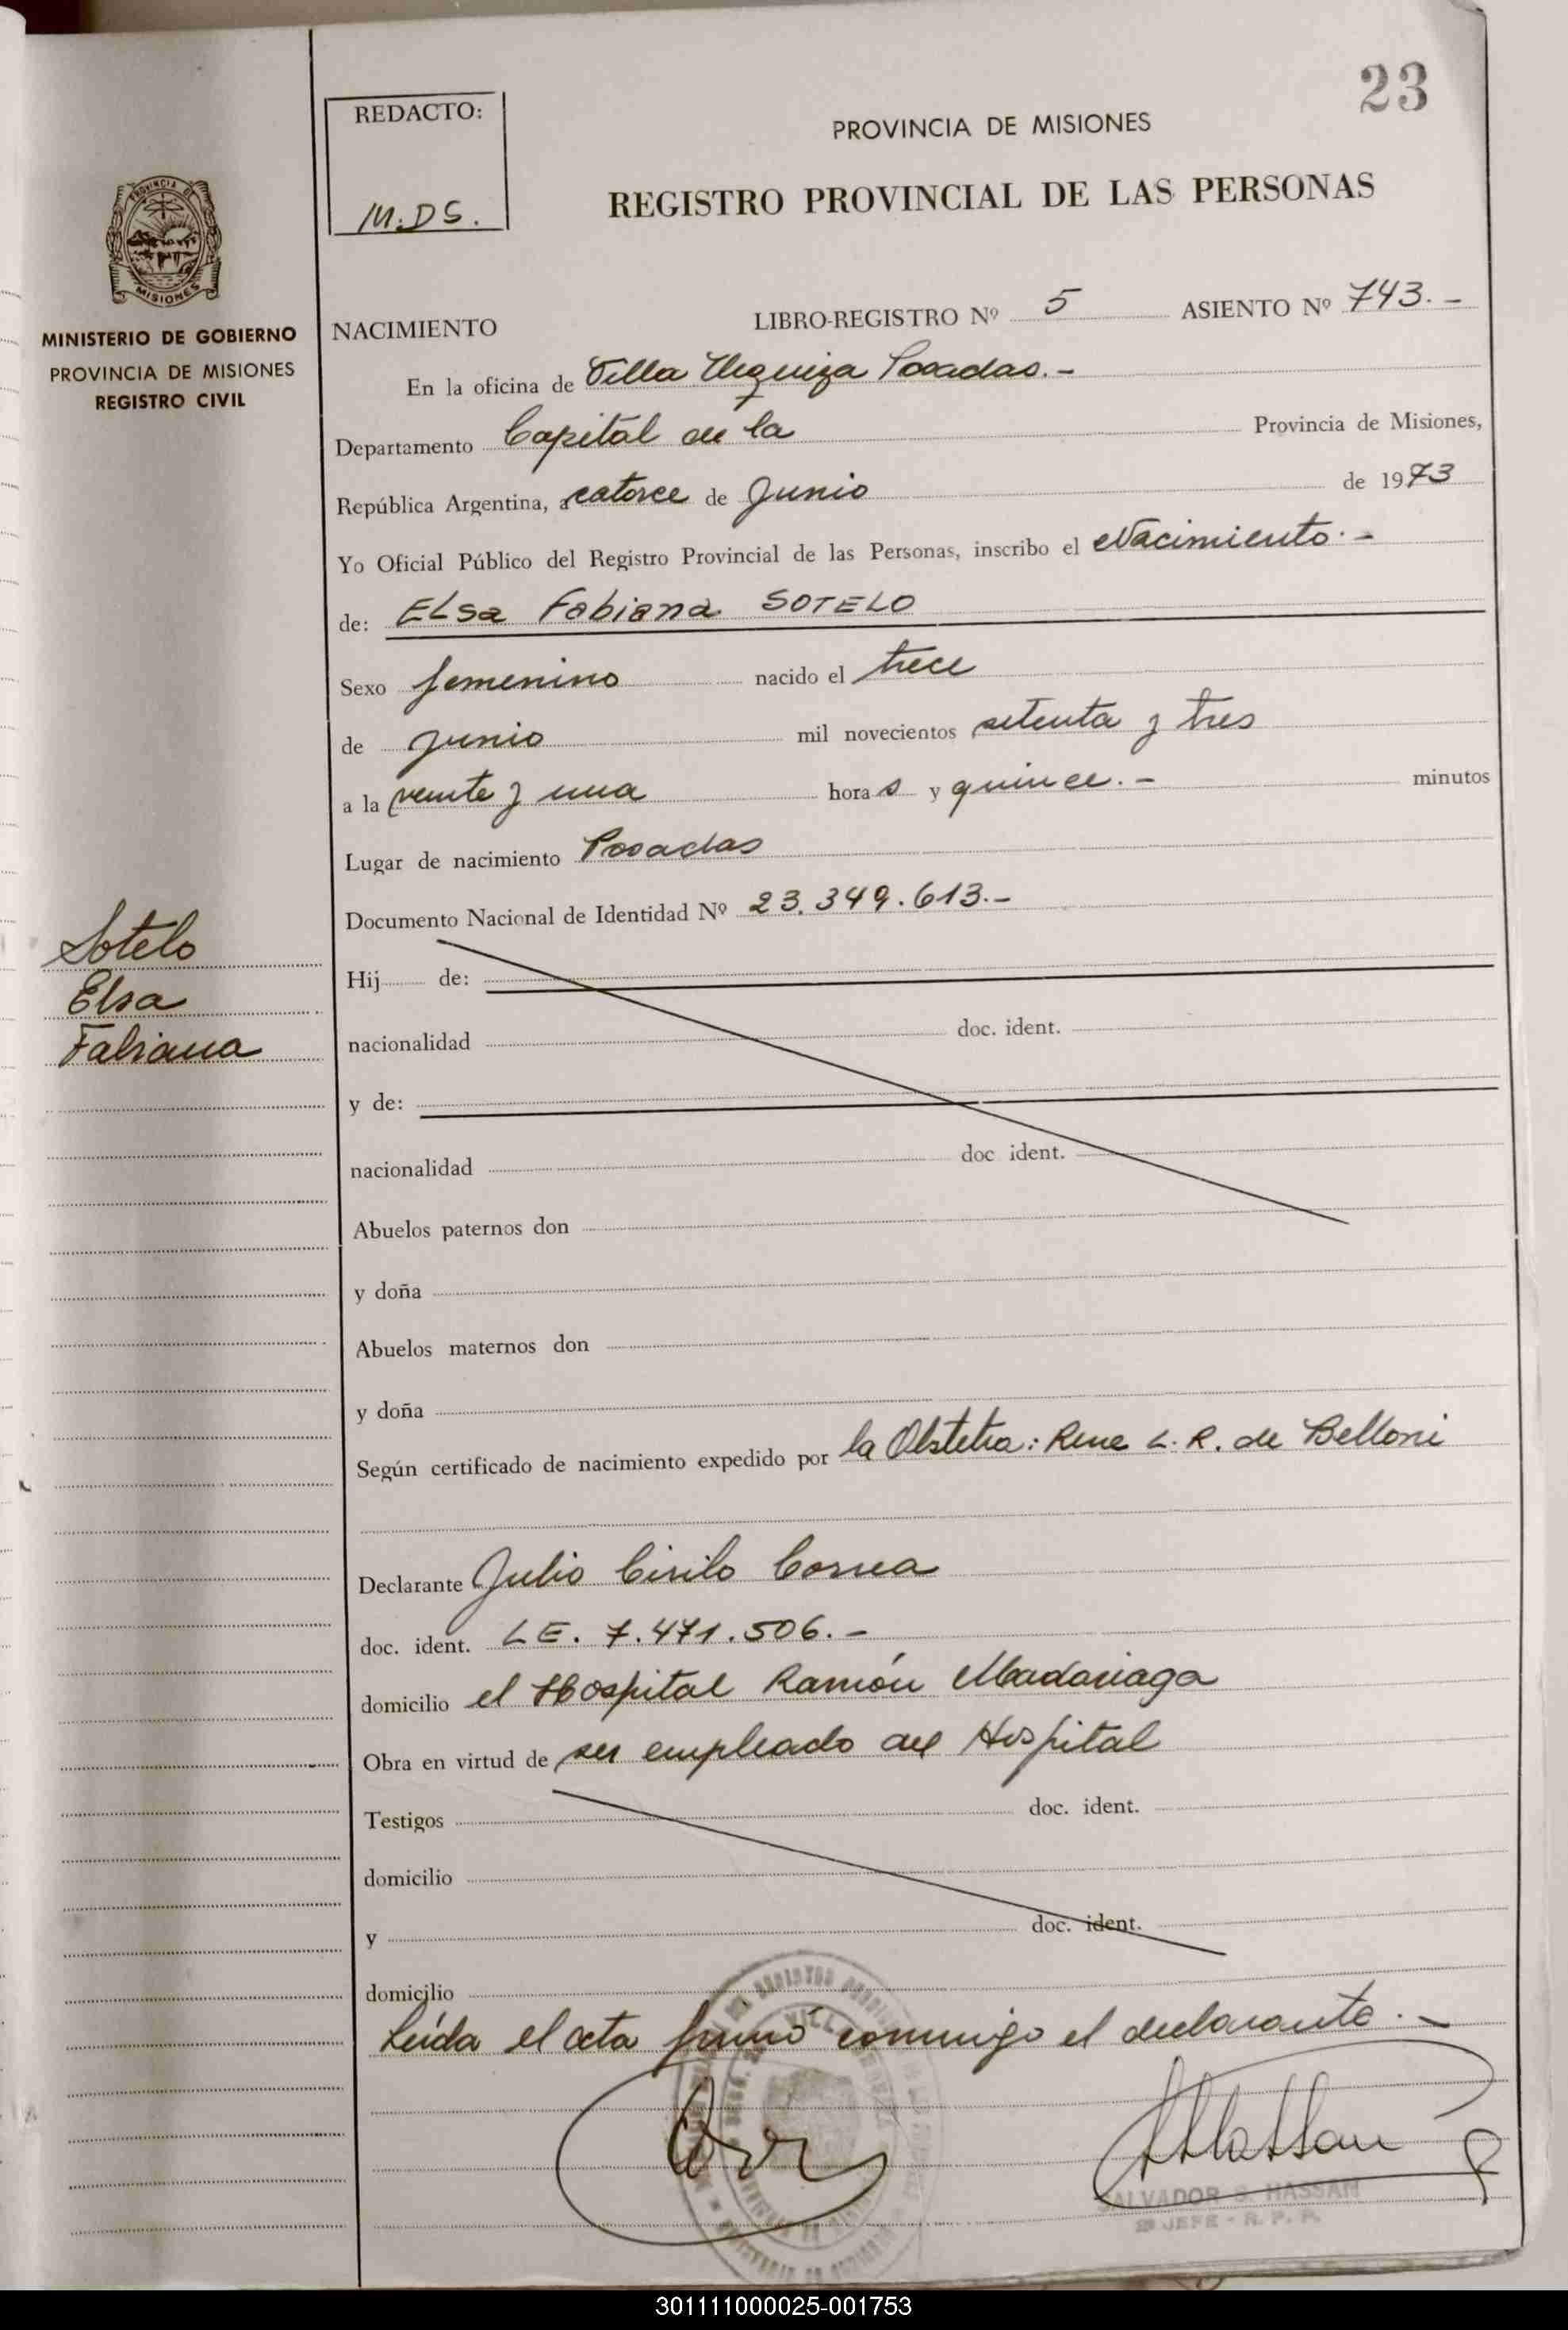 23
REDACTO:
M.DS.
PROVINCIA DE MISIONES
REGISTRO PROVINCIAL DE LAS PERSONAS
PROVINCIA DE
MISIONES
MINISTERIO DE GOBIERNO
PROVINCIA DE MISIONES
REGISTRO CIVIL
NACIMIENTO LIBRO-REGISTRO Nº 5 ASIENTO Nº 743.-
En la oficina de Villa Urquiza Posadas.-
Departamento Capital de la Provincia de Misiones,
República Argentina, a catorce de Junio de 1973
Yo Oficial Público del Registro Provincial de las Personas, inscribo el Nacimiento.-
de: ELsa Fabiana SOTELO
Sexo femenino nacido el trece
de junio mil novecientos setenta y tres
a la veinte y una hora s y quince.- minutos
Lugar de nacimiento Posadas
Documento Nacional de Identidad Nº 23.349.613.-
Sotelo
Elsa
Fabiana
Hij de:
nacionalidad doc. ident.
y de:
nacionalidad doc ident.
Abuelos paternos don
y doña
Abuelos maternos don
y doña
Según certificado de nacimiento expedido por la Obstetra: Rene L. R. de Belloni
Declarante Julio Cirilo Correa
doc. ident. LE. 7.471.506.-
domicilio el Hospital Ramón Madariaga
Obra en virtud de ser empleado del Hospital
Testigos doc. ident.
domicilio
y doc. ident.
domicilio
Leída el acta firmó conmigo el declarante.-
SALVADOR S. HASSAN
JEFE - R. P. P.
301111000025-001753